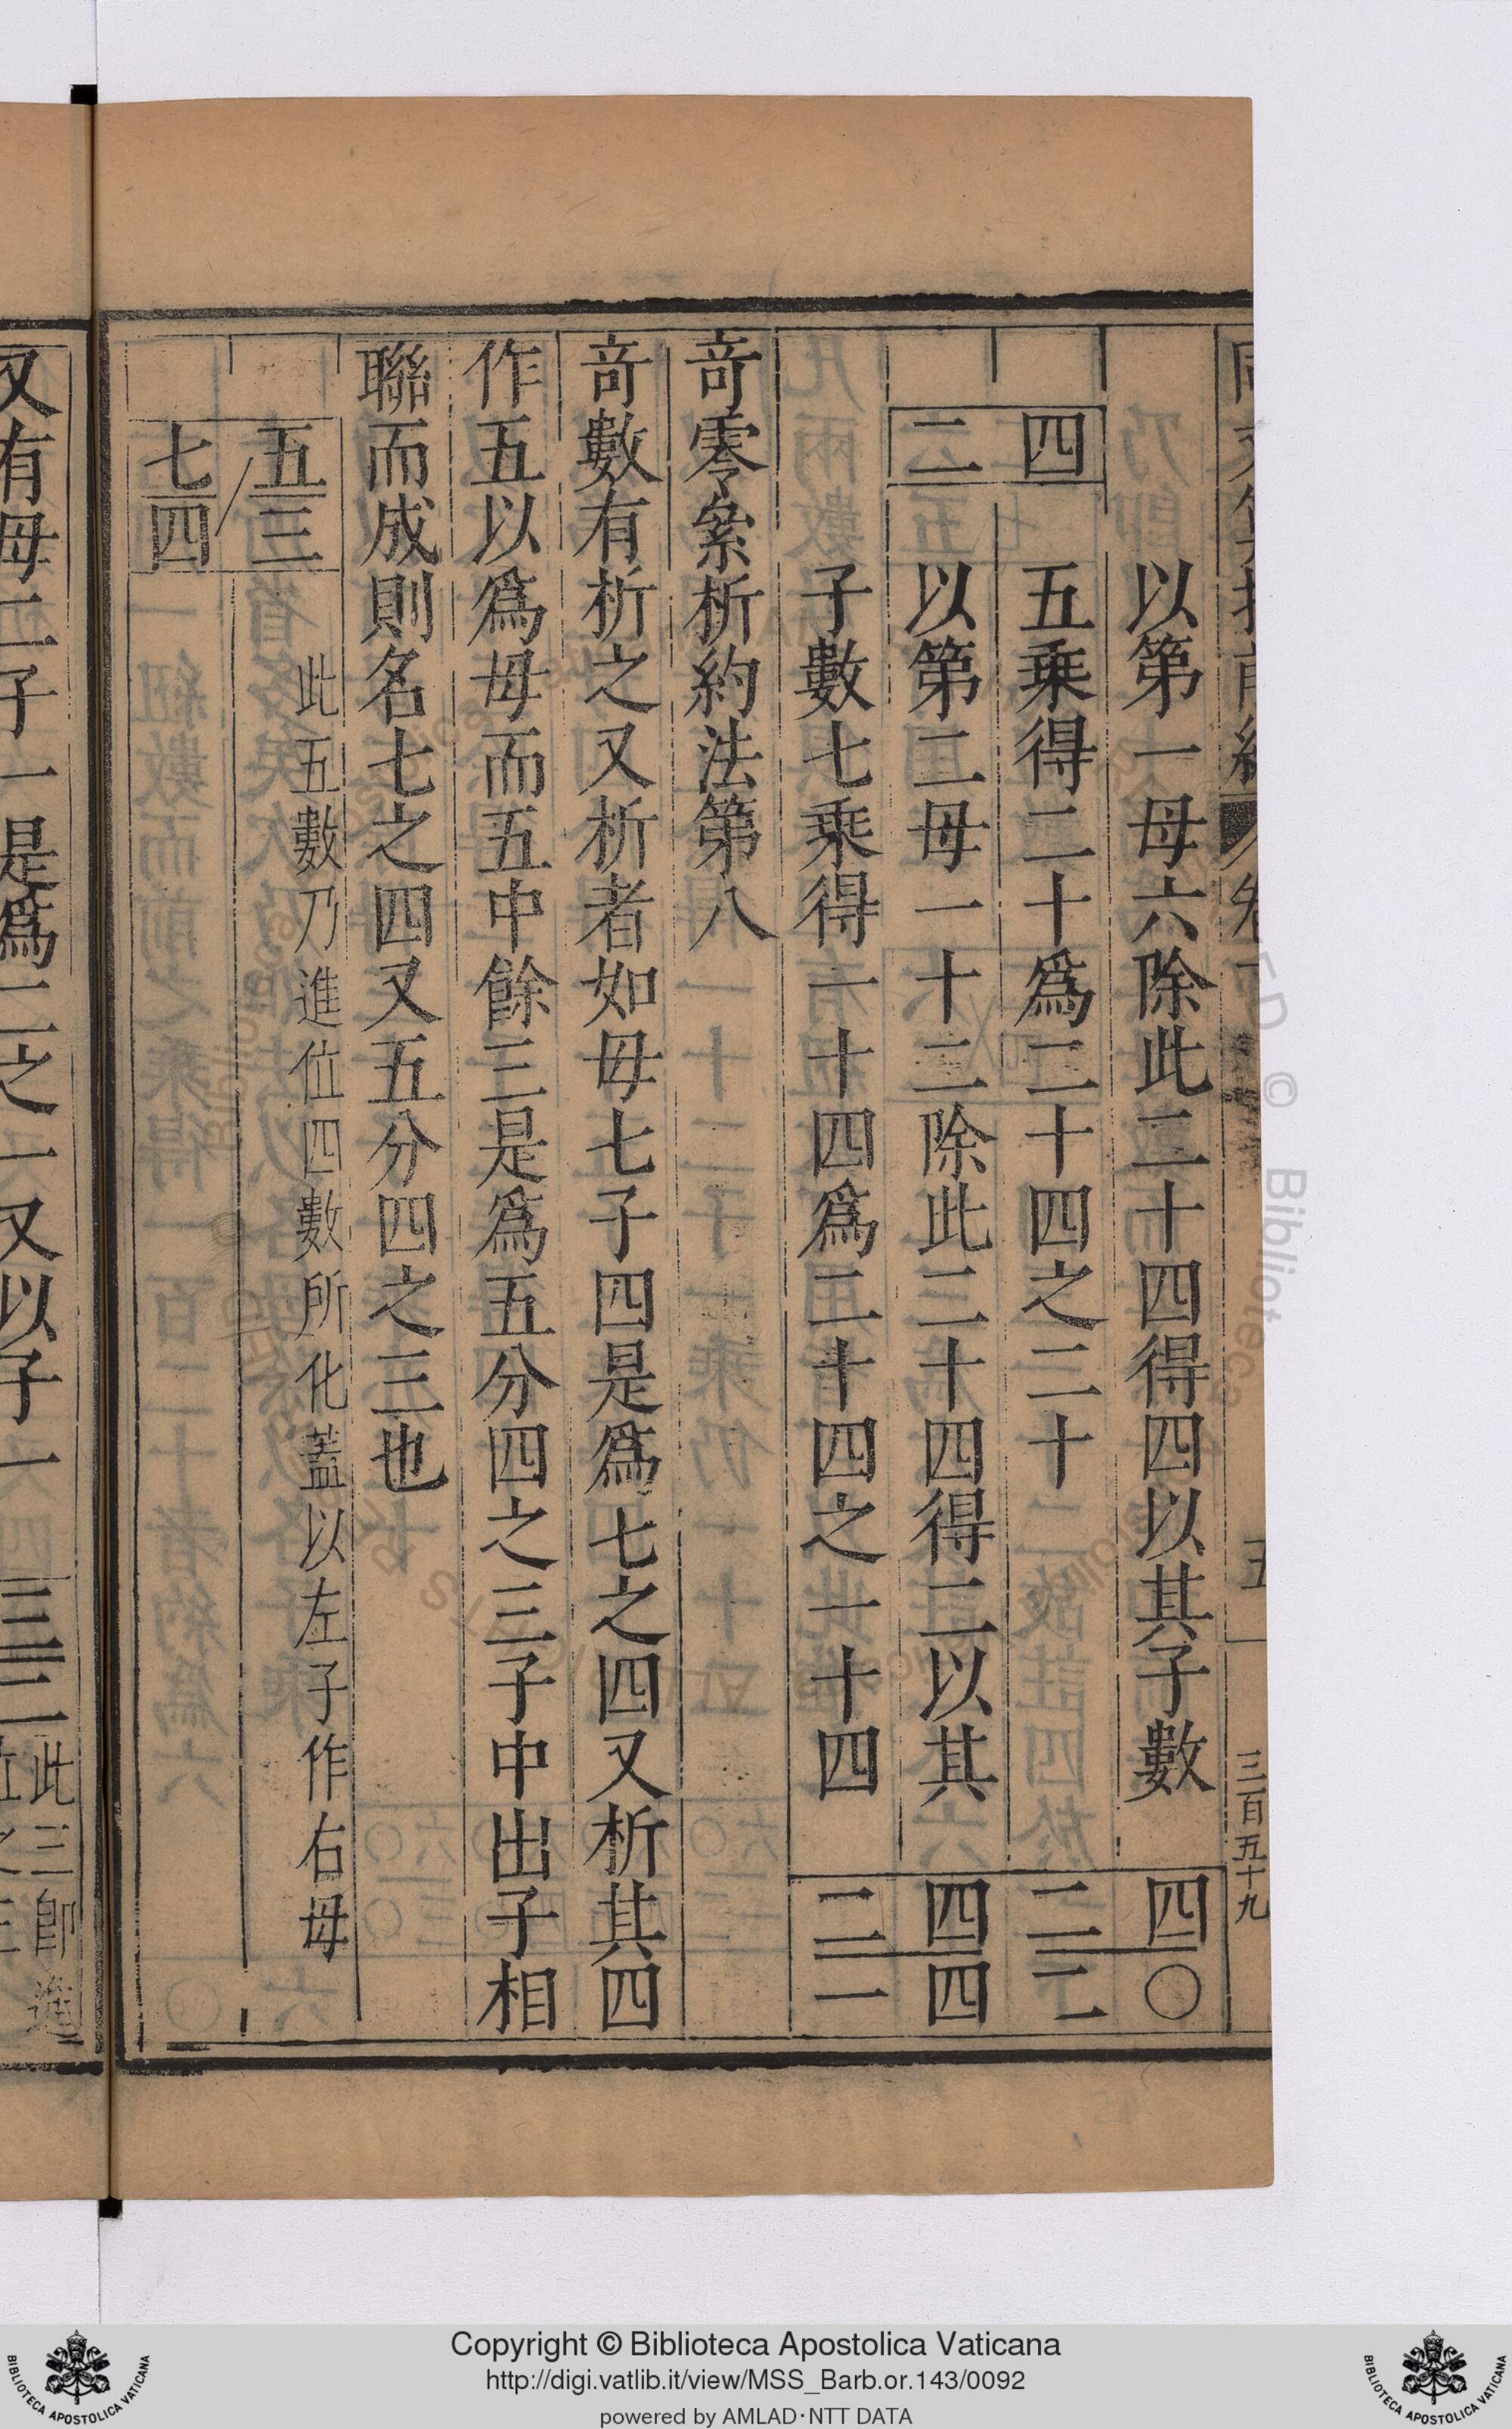 三百五十九
以第一母六除此二十四得四以其子數
四〇
四
五乘得二十爲二十四之二十
二二
二
以第二母一十二除此二十四得二以其
四四
子數七乘得一十四爲二十四之一十四
二一
竒零絫析約法第八
竒數有析之又析者如母七子四是爲七之四又析其四
作五以爲母而五中餘三是爲五分四之三子中出子相
聯而成則名七之四又五分四之三也
五三
此五數乃進位四數所化蓋以左子作右母
七四
又有母二子一是爲二之一又以子一
三二
此三卽進
Copyright © Biblioteca Apostolica Vaticana
http://digi.vatlib.it/view/MSS_Barb.or.143/0092
powered by AMLAD·NTT DATA
BIBLIOTECA APOSTOLICA VATICANA
BIBLIOTECA APOSTOLICA VATICANA